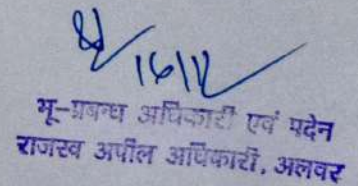 16/12
भू-प्रबन्ध अधिकारी एवं पदेन
राजस्व अपील अधिकारी, अलवर